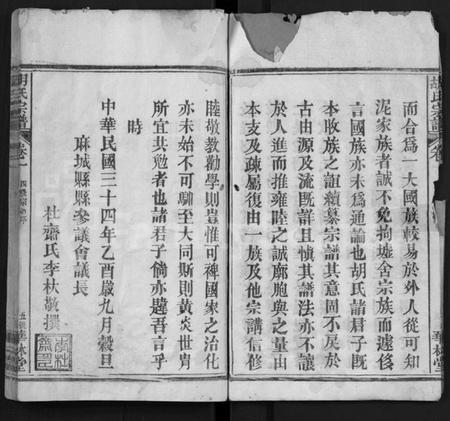 而合爲一大國族較易於外人從可知
泥家族者誠不免拘墟舍宗族而遽後
言國族亦未爲通論也胡氏諸君子旣
本收族之誼續纂宗譜其意固不戾於
古由源及流旣詳且慎其譜法亦不讓
於人進而推雍睦之誠廓胞與之量由
本支及疎屬復由一族及他宗講信修
睦敬教勸學則豈惟可裨國家之治化
亦未始不可馴至大同斯則黃炎世冑
所宜共勉者也諸君子倘亦韙吾言乎
時
中華民國三十四年乙酉歲九月穀旦
麻城縣縣參議會議長
杜齋氏李杕敬撰
胡氏宗譜
卷一